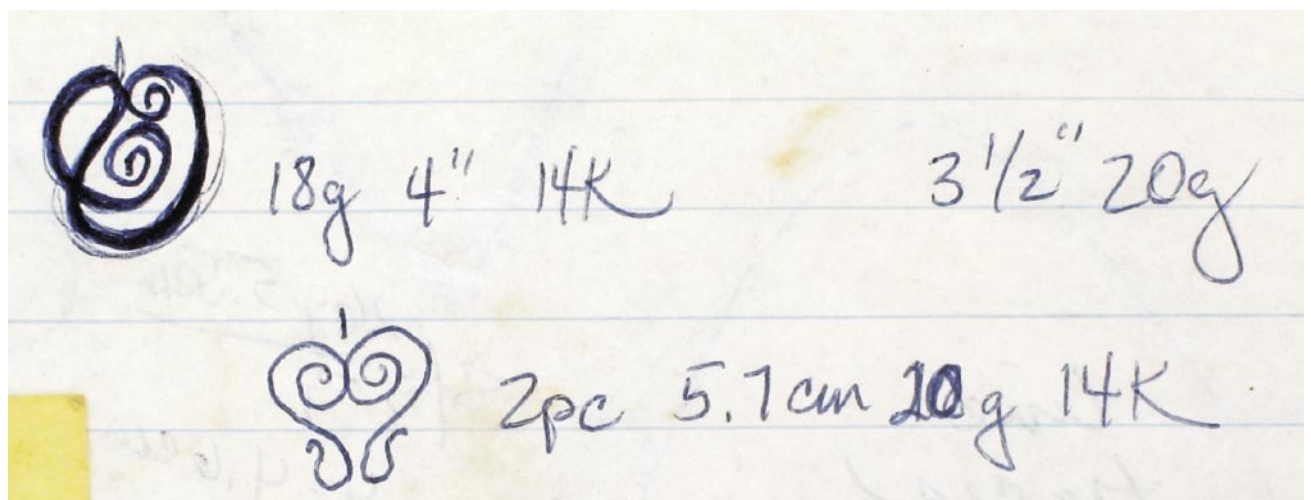 18g 4" 14K 3 1/2" 20g
2pc 5.7cm 20g 14K